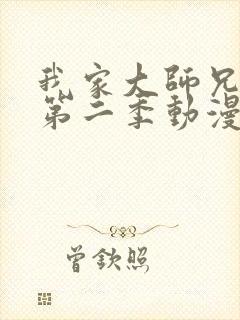 我家大師兄
第二季動漫
曾欽照